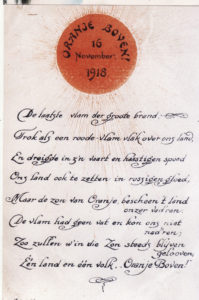 ORANJE BOVEN!
16
November
1918.
De laatste vlam der groote brand.
Trok als een roode vlam vlak over ons land,
En dreigde in z'n vaart en haastigen spoed
Ons land ook te zetten in rossigen gloed.
Maar de zon van Oranje bescheen 't land
onzer vad'ren.
De vlam had geen vat en kon ons niet
nad'ren;
Zoo zullen w'in die Zon steeds blijven
gelooven,
Eén land en één volk. Oranje Boven!